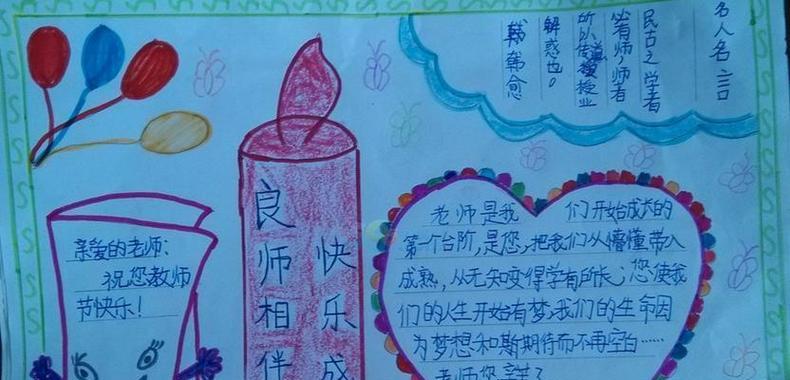 名人名言
民古之学者
必有师,师者
所以传道授业
解惑也。
韩韩愈
亲爱的老师:
祝您教师
节快乐!
良师相伴
快乐成
老师是我 们开始成长的
第一个台阶,是您,把我们从懵懂带入
成熟,从无知变得学有所长;您使我
们的人生开始有梦,我们的生命因
为梦想和斯期待而不再空白……
老师您辛苦了